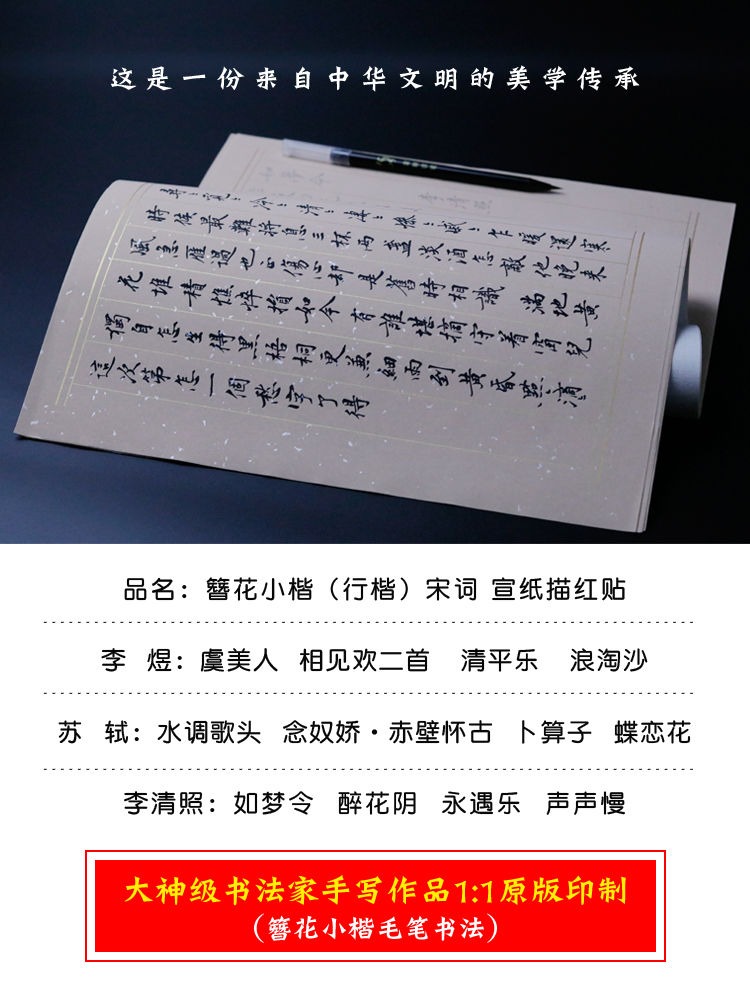 这是一份来自中华文明的美学传承
李清照
尋〻覓〻冷〻清〻悽〻慘〻戚〻乍暖還寒
時候最難將息三杯兩盞淡酒怎敵他晚來
風急雁過也正傷心卻是舊時相識 滿地黃
花堆積憔悴損如今有誰堪摘守着窗兒
獨自怎生得黑梧桐更兼細雨到黃昏點滴
這次第怎一個愁字了得
品名：簪花小楷（行楷）宋词 宣纸描红贴
李 煜：虞美人 相见欢二首 清平乐 浪淘沙
苏 轼：水调歌头 念奴娇·赤壁怀古 卜算子 蝶恋花
李清照：如梦令 醉花阴 永遇乐 声声慢
大神级书法家手写作品1:1原版印制
（簪花小楷毛笔书法）